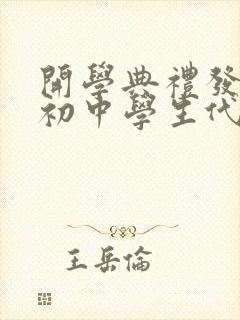 開學典禮發
初中學生代
王岳倫